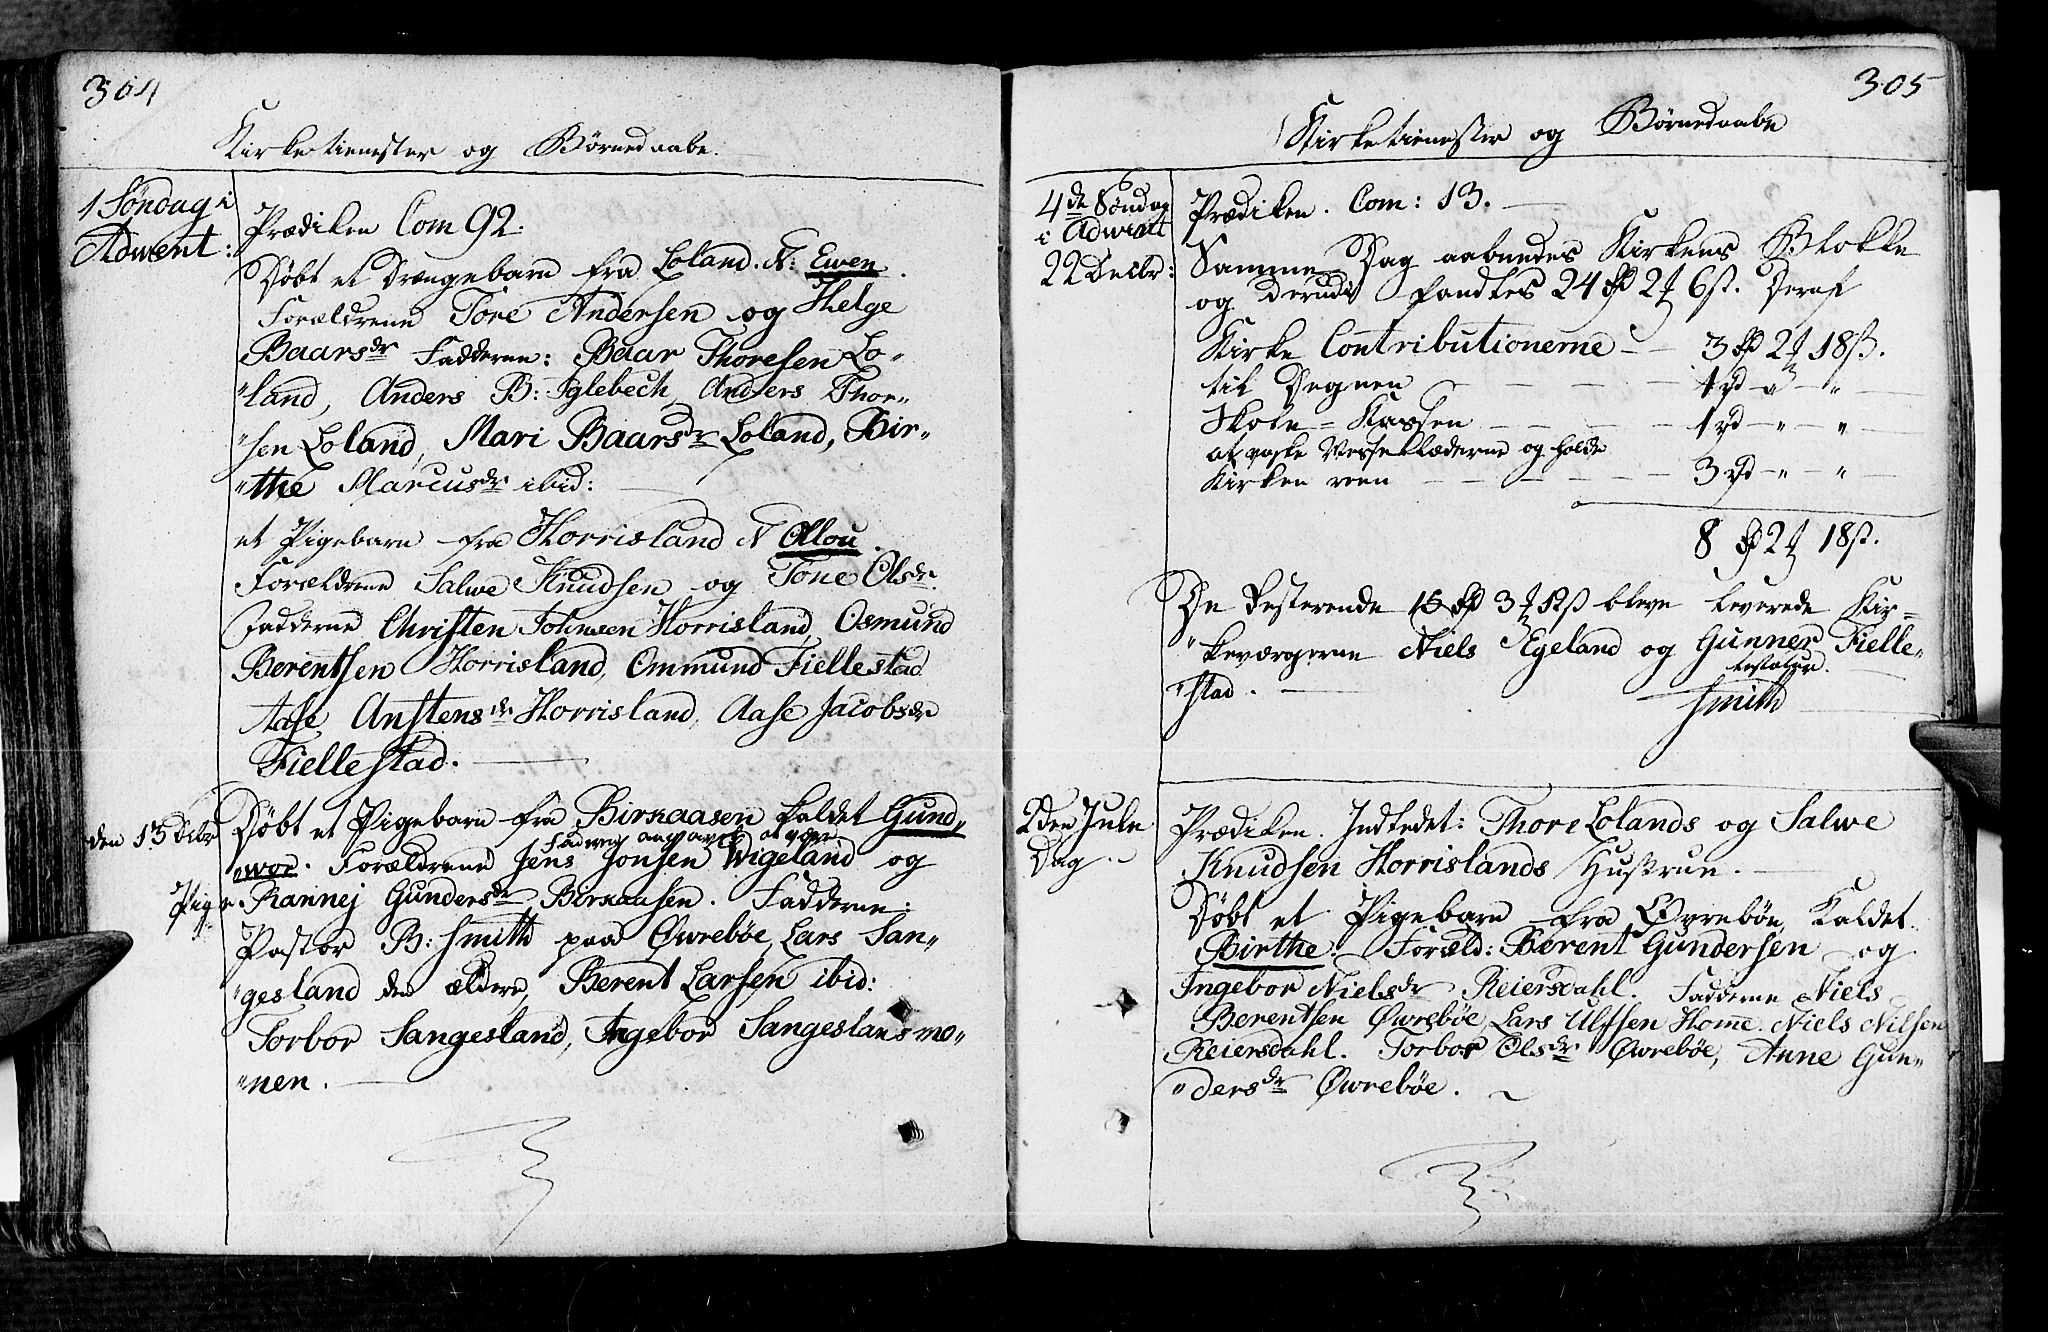 304
Kirketienester og Børnedaabe.
1 Søndag i
Adwent:
Prædiken Com 92.
Døbt et Drængebarn fra Loland. N: Ewen.
Forældrene Tore Andersen og Helge
Baarsdr Fadderne: Baar Thoresen Lo-
"land, Anders B: Iglebech, Anders Thor-
"sen Loland, Mari Baarsdr Loland, Bir-
"the Marcusdr ibid:
et Pigebarn fra Horrisland N Ollou.
Forældrene Salwe Knudsen og Tone Olsdr.
Fadderne Christen Johnsen Horrisland, Osmund
Berentsen Horrisland, Ommund Fiellestad
Aase Anstensdr Horrisland, Aase Jacobsdr
Fiellestad.
den 13 Decbr
Døbt et Pigebarn fra Birkaasen kaldet Gund-
"wor. Forældrene Jens Jonsen Wigeland og
at være
Pige
Rannej Gundersdr Birkaasen. Fadderne:
Pastor B: Smith paa Øwrebøe, Lars San-
"gesland den ældere, Berent Larsen ibid:
Torbor Sangesland, Ingebor Sangeslans mo-
"nen.
305
Kirketienester og Børnedaabe
4de Søndag
i Adwent
22 Decbr:
Prædiken. Com: 13.
Samme Dag aabnedes Kirkens Blokke
og derudi fandtes 24 rd 2 ₰ 6 ß. Deraf
Kirke Contributionerne - 3 rd 2 ₰ 18 ß.
til Degnen - - - 1 rd - " - " -
Skole-Kassen - - - 1 rd - " - " -
at vaske Messeklæderne og holde
Kirken reen - - - 3 rd - " - " -
8 rd 2 ₰ 18 ß.
De resterende 15 rd 3 ₰ 12 ß bleve leverede Kir-
"keværgerne Niels Egeland og Gunner Fielle-
"stad.
testatur.
Smith
2den Jule
Dag.
Prædiken. Indledet: Thore Lolands og Salwe
Knudsen Horrislands Hustruer.
Døbt et Pigebarn fra Øvrebøe, kaldet
Birthe. Foræld: Berent Gundersen og
Ingebor Nielsdr Reiersdahl. Fadderne Niels
Berentsen Øwrebøe, Lars Ulfsen Homme. Niels Nilsen
Reiersdahl. Torbor Olsdr Øwrebøe, Anne Gun-
"dersdr Øwrebøe.